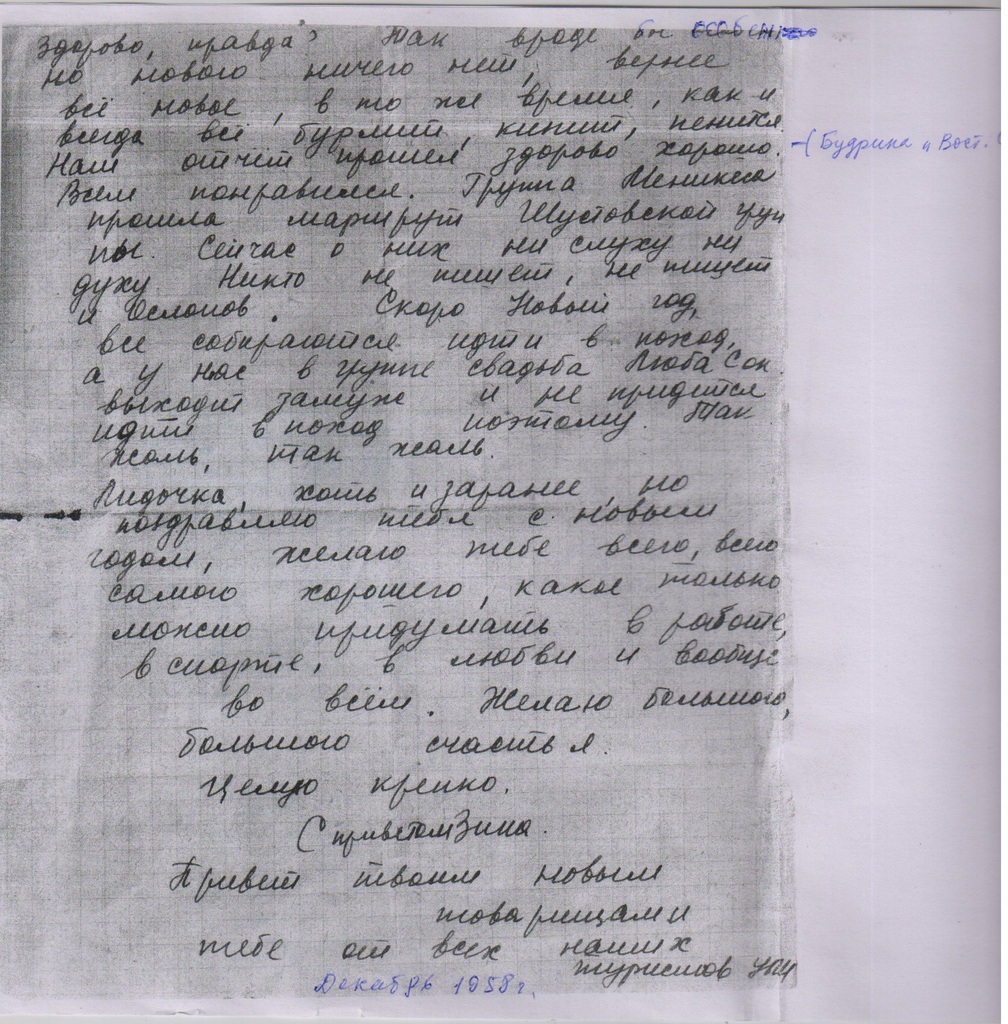 Здорово, правда? Так вроде бы особен
но нового ничего нет, вернее
всё новое, в то же время, как и
всегда всё бурлит, кипит, пенится.
Наш отчёт прошел здорово хорошо.
(Будрина и Вост.
Всем понравился. Группа
прошла маршрут Шустовской груп
пы. Сейчас о них ни слуху ни
духу. Никто не пишет, не пишет
и Ослопов. Скоро Новый год,
все собираются идти в поход,
а у нас в группе свадьба Люба Сок
выходит замуж и не придётся
идти в поход поэтому. Так
жаль, так жаль.
Лидочка, хоть и заранее, но
поздравляю тебя с новым
годом, желаю тебе всего, всего
самого хорошего, какое только
можно придумать в работе,
в спорте, в любви и вообще
во всём. Желаю большого,
большого счастья.
Целую крепко.
С приветом Зина.
Привет твоим новым
товарищам и
тебе от всех наших
туристов УПИ
Декабрь 1958 г.